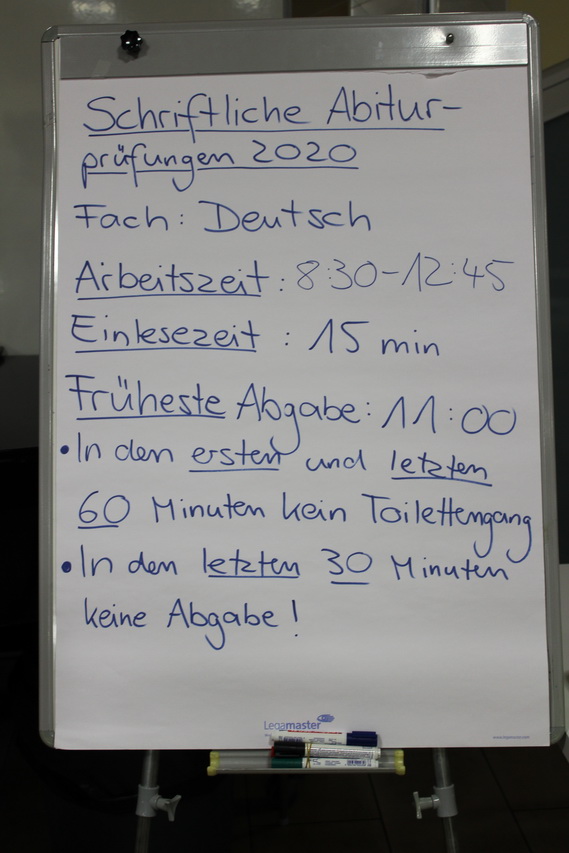 Schriftliche Abitur-
prüfungen 2020
Fach: Deutsch
Arbeitszeit: 8:30-12:45
Einlesezeit: 15 min
Früheste Abgabe: 11:00
• In den ersten und letzten
60 Minuten kein Toilettengang
• In den letzten 30 Minuten
keine Abgabe!
Legamaster